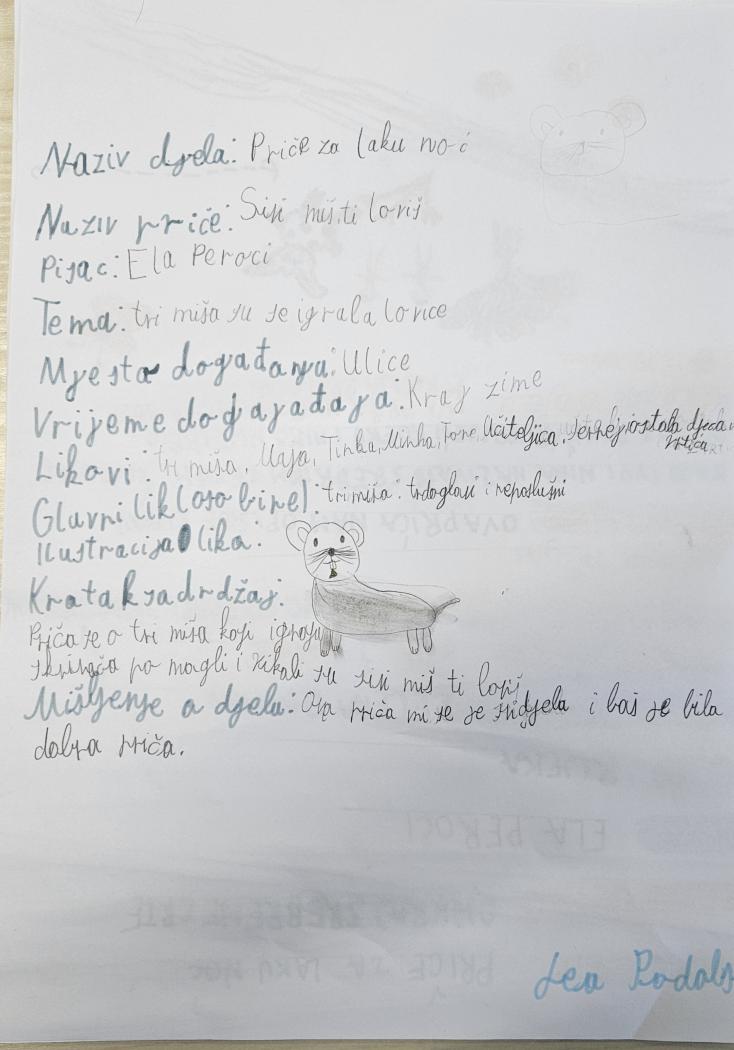 Naziv djela: Priče za laku noć
Naziv priče: Siji miš, ti loviš
Pisac: Ela Peroci
Tema: tri miša su se igrala lovice
Mjesta događanja: Ulice
Vrijeme dogajađaja: Kraj zime
Likovi: tri miša, Maja, Tinka, Minka, Tone, Učiteljica, Jernej i ostala djeca vrtića
Glavni lik (osobine): tri miša: tvdoglavi i neposlušni
Ilustracija lika:
Kratak sadrdžaj:
Priča je o tri miša koji igraju
skrivača po magli i vikali su siji miš ti loviš
Mišljenje o djelu: Ova priča mi se je svidjela i baš je bila
dobra priča.